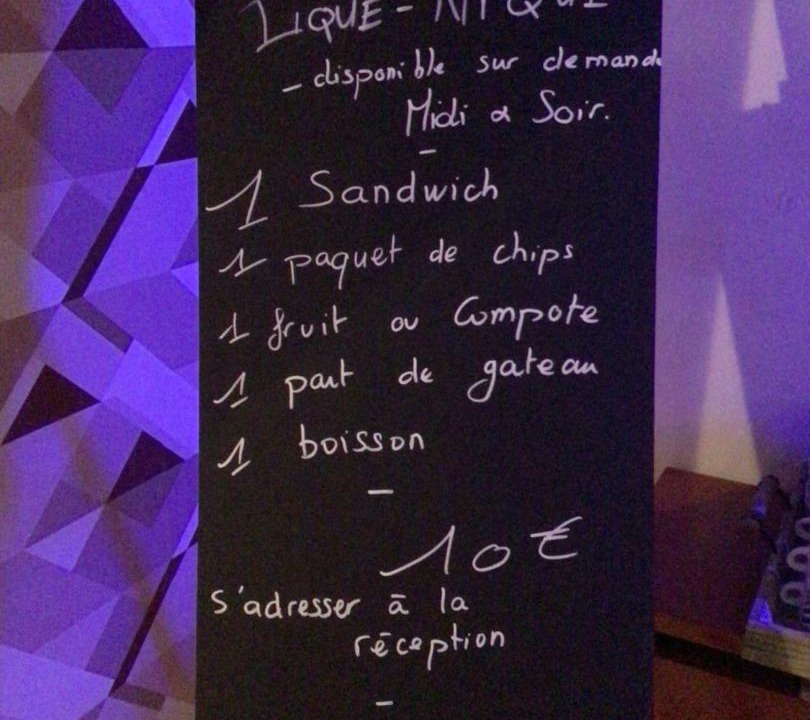 - disponible sur demande
Midi & Soir.
-
1 Sandwich
1 paquet de chips
1 fruit ou Compote
1 part de gateau
1 boisson
-
10 €
s'adresser à la
réception
-